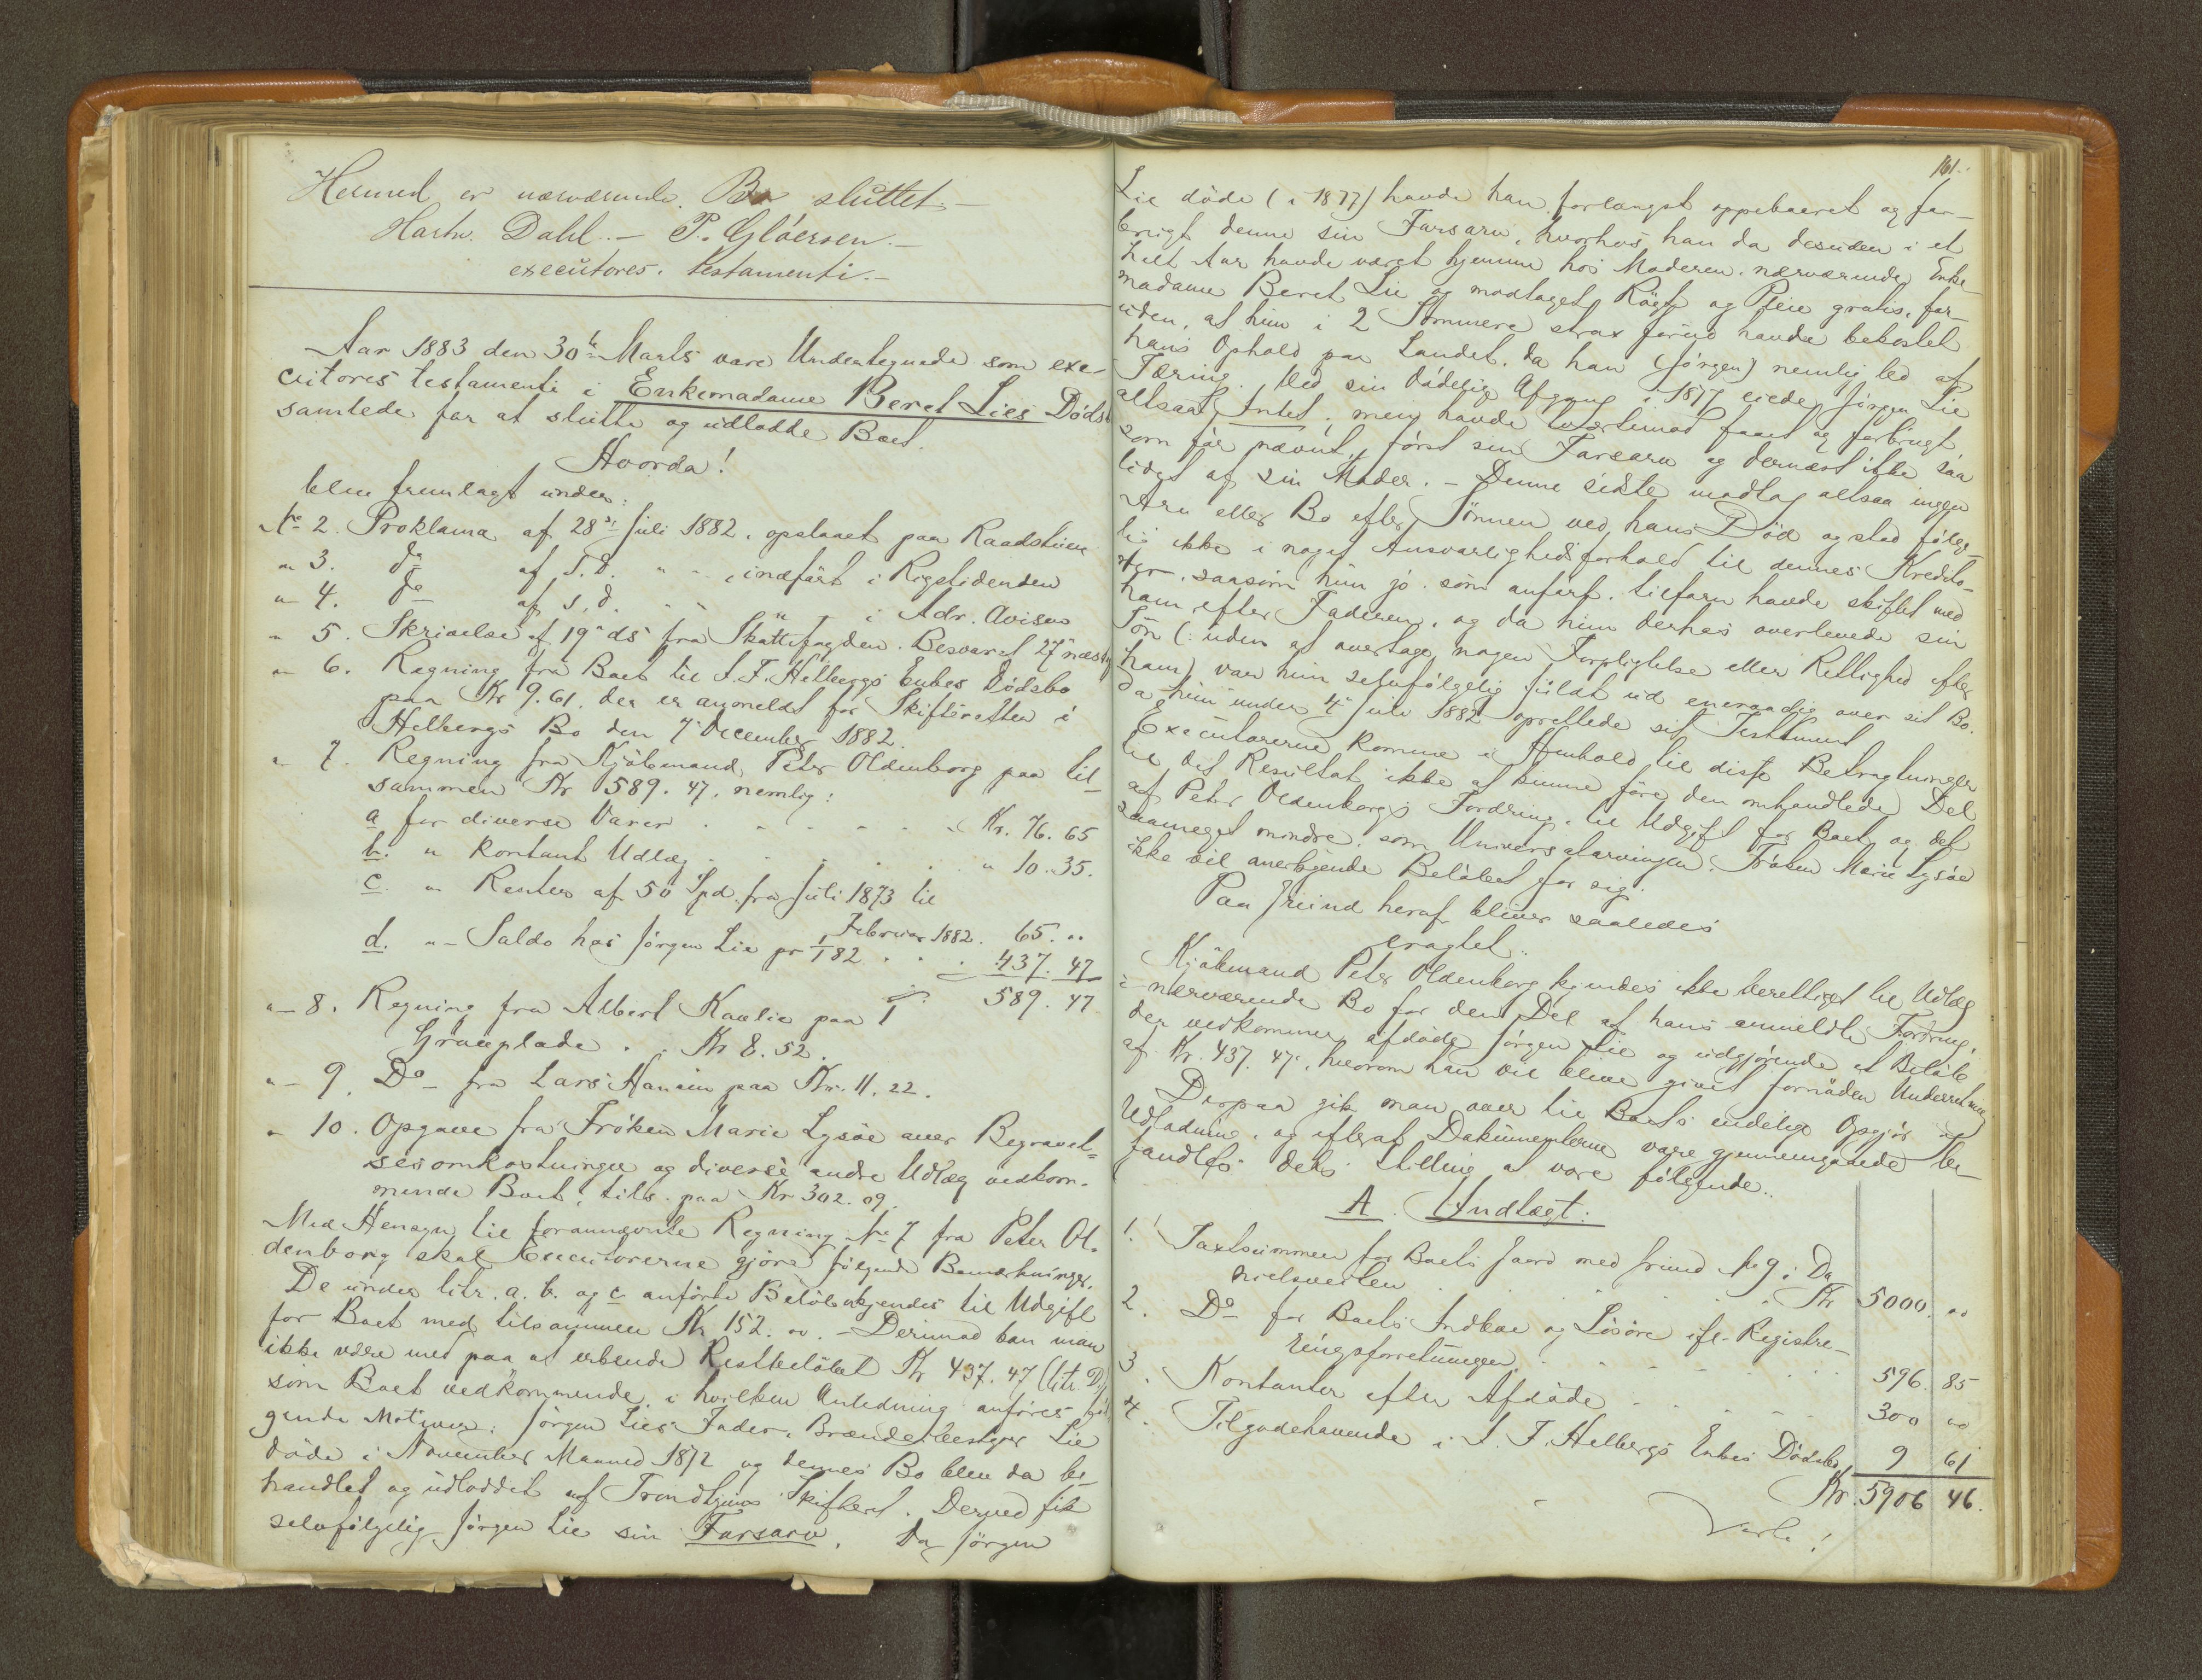 Hermed er nærværende Bo sluttet.
Hartv. Dahl. – P. Gløersen. –
executores. testamenti. –
Aar 1883 den 30te Marts vare Undertegnede som exe-
cutores testamenti i Enkemadame Beret Lies Dødsb
samlede for at slutte og udlodde Boet.
Hvorda!
blev fremlagt under:
No 2. Proklama af 28de Juli 1882, opslaaet paa Raadstuen
" 3. do af s.d. " – , indført i Rigstidenden
" 4. do af s.d. " – " i Adr. Avisen
" 5. Skrivelse af 19 ds fra Skattefogden. Besvaret 27 næst
" 6. Regning fra Boet til I. F. Helbergs Enkes Dødsbo
paa Kr 9.61, der er anmeldt for Skifteretten i
Helbergs Bo den 7 December 1882.
" 7. Regning fra Kjøbmand Peter Oldenborg paa til-
sammen Kr 589. 47. nemlig:
a for diverse Varer . . . . . . Kr. 76. 65
b. " kontant Udlæg . . . . . " 10. 35.
c. " Renter af 50 Spd. fra Juli 1873 til
Februar 1882. 65. "
d. " – Saldo hos Jørgen Lie pr 1/1 82 . . . 437. 47
589. 47
" – 8. Regning fra Albert Kavlie paa 1
Gravplade . . Kr 8. 52.
" – 9. Do – fra Lars Hansen paa Kr. 11. 22.
" 10. Opgave fra Frøken Marie Lysøe over Begravel-
sesomkostninger og diverse andre Udlæg vedkom-
mende Boet, tils. paa Kr 302. 09.
Med Hensyn til forannævnte Regning No 7 fra Peter Ol-
denborg skal Executorerne gjøre følgende Bemærkninger.
De under litr. a. b. og c anførte Beløb vkjendes til Udgift
for Boet med tilsammen Kr 152. 00. – Derimod kan man
ikke være med paa at erkjende Restbeløbet Kr 437. 47 (litr. D)
som Boet vedkommende, i hvilken Anledning anføres føl
gende Motiver: Jørgen Lies Fader, Brændevinsbesigter Lie
døde i November Maaned 1872 og dennes Bo blev da be-
handlet og udloddet af Trondhjems Skifteret. Derved fik
selvfølgelig Jørgen Lie sin Farsarv. Da Jørgen
161.
Lie døde (i 1877) havde han forlængst oppebaaret og for-
brugt denne sin Farsarv, hvorhos han da desuden i et
helt Aar havde været hjemme hos Moderen, nærværende Enke-
madame Beret Lie og modtaget Røgt og Pleie gratis, for-
uden, at hun i 2 Sommere strax forud havde bekostet
hans Ophold paa Landet, da han (Jørgen) nemlig led af
Tæring. Ved sin dødelige Afgang i 1877 eiede Jørgen Lie
altsaa Intet, men havde tværtimod faaet og forbrugt,
som før nævnt, først sin Farsarv og dernæst ikke saa
lidet af sin Moder. – Denne sidste modtog altsaa ingen
Arv eller Bo efter Sønnen ved hans Død og stod følge-
lig ikke i noget Ansvarlighedsforhold til dennes Kredito-
rer, saasom hun jo, som anført, tilforn havde skiftet med
ham efter Faderen, og da hun derhos overlevede sin
Søn (: uden at overtage nogen Forpligtelse eller Rettighed efter
ham) var hun selvfølgelig fuldt ud eneraadig over sit Bo.
da hun under 4 Juli 1882 oprettede sit Testament.
Executorerne komme i Henhold til disse Betragtninger
til det Resultat ikke at kunne føre den omhandlede Del
af Peter Oldenborgs Fordring, til Udgift for Boet, og det
saameget mindre, som Universalarvingen, Frøken Marie Lysøe
ikke vil anerkjende Beløbet for sig.
Paa Grund heraf bliver saaledes
eragtet:
Kjøbmand Peter Oldenborg kjendes ikke berettiget til Udlæg
i nærværende Bo for den Del af hans anmeldte Fordring,
der vedkommer afdøde Jørgen Lie og udgjørende et Beløb
af Kr. 437. 47, hvorom han vil blive givet fornøden Underretning
Derpaa gik man over til Boets endelige Opgjør og
Udlodning, og efterat Dokumenterne vare gjennemgaaede be-
fandtes dets Stilling at være følgende:
A. Indtægt:
1. Taxtsummen for Boets Gaard med Grund No 9 i Da
nielsveiten . . . . . . Kr 5000 00
2. Do – for Boets Indboe og Løsøre ifl. Registre-
ringsforretningen . . . . . . 596. 85
3. Kontanter efter Afdøde . . . . . 300 00
4. Tilgodehavende i I. F. Helbergs Enkes Dødsbo 9 61
Kr. 5906 46.